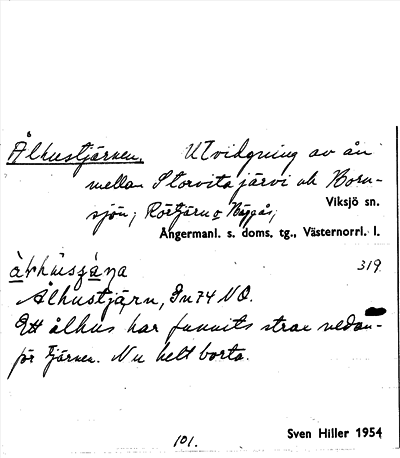 Ålhustjärnen. Utvidgning av ån
mellan Storvitajärvi och Born-
sjön; Rötjärn o Häggås;
Viksjö sn.
Ångermanl. s. doms. tg., Västernorrl. l.
319
Ålhustjärn, Gn 74 NO.
Ett ålhus har funnits strax nedan-
för tjärnen. Nu helt borta.
Sven Hiller 1954
101.